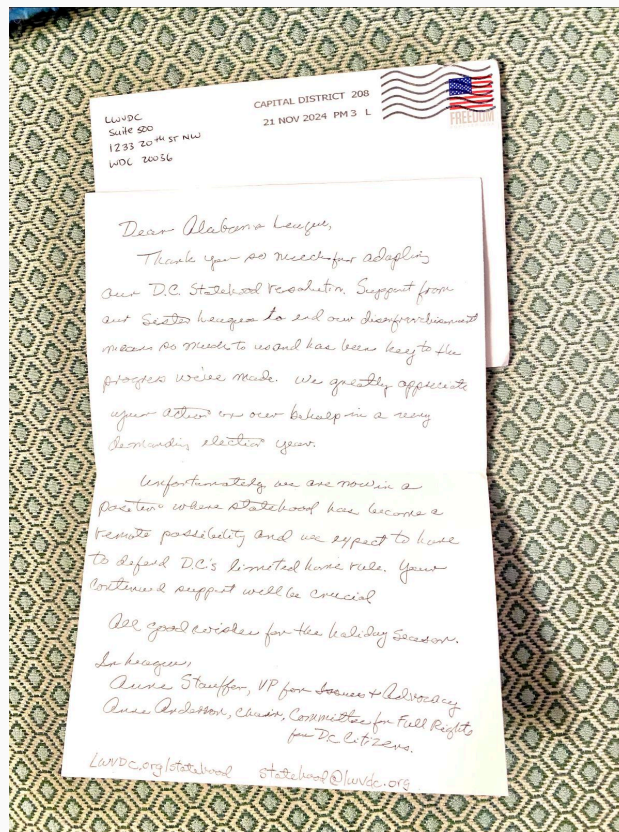 LWVDC
Suite 500
1233 20th ST NW
WDC 20036
CAPITAL DISTRICT 208
21 NOV 2024 PM 3 L
FREEDOM
Dear Alabama League,
Thank you so much for adopting
our D.C. Statehood resolution. Support from
our Sister Leagues to end our disenfranchisement
means so much to us and has been key to the
progress we've made. We greatly appreciate
your action on our behalf in a very
demanding election year.
Unfortunately we are now in a
position where statehood has become a
remote possibility and we expect to have
to defend D.C.'s limited home rule. Your
continued support will be crucial
All good wishes for the holiday season.
In League,
Anne Stauffer, VP for Issues + Advocacy
Anne Anderson, Chair, Committee for Full Rights
for D.C. Citizens.
LWVDC.org/statehood statehood@lwvdc.org